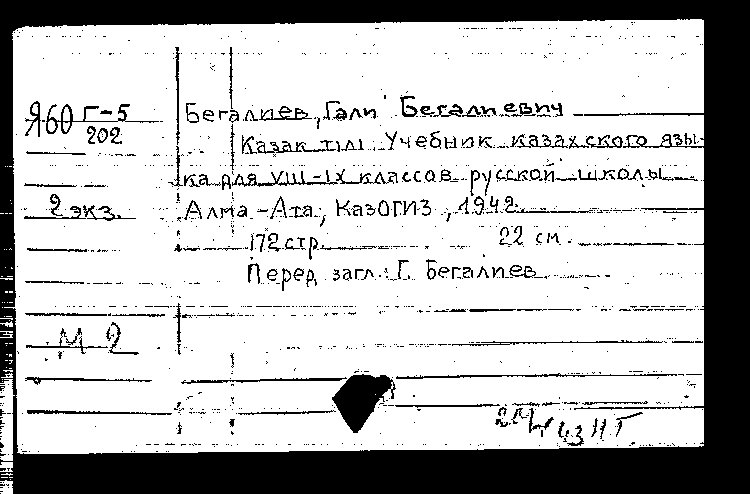 Я60 Г-5
202
Бегалиев, Гали Бегалиевич
Казак тiлi. Учебник казахского язы-
ка для VIII-IX классов русской школы
2 экз.
Алма-Ата, КазОГИЗ, 1942.
172 стр. 22 см.
Перед загл.: Г. Бегалиев
М 2